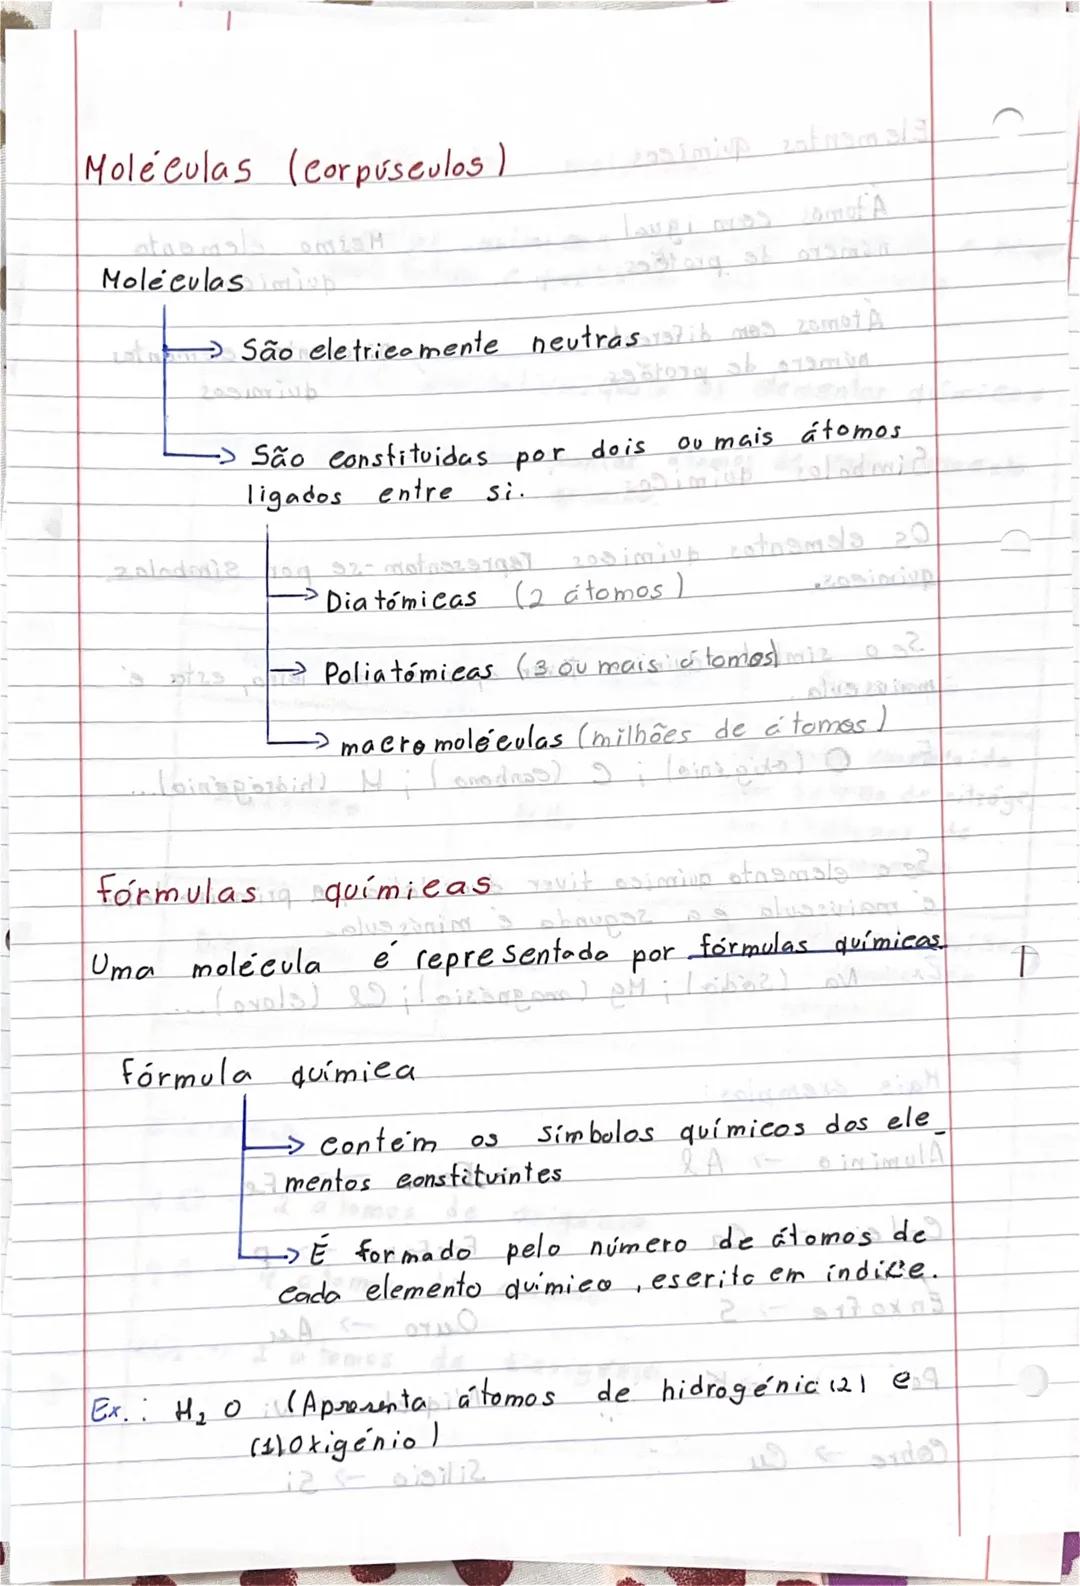 Moléculas (corpúsculos)
Moléculas
→ São eletricamente neutras
→ São constituidas por dois ou mais átomos
ligados entre si.
→ Diatómicas (2 átomos)
→ Poliatómicas (3 ou mais átomos)
→ macromoléculas (milhões de átomos)
fórmulas químicas
Uma molécula é representada por fórmulas químicas.
fórmula química
→ contém os símbolos químicos dos ele_
mentos constituintes
→ É formado pelo número de átomos de
cada elemento químico, escrito em índice.
Ex.: H₂O (Apresenta átomos de hidrogénio (2) e
(1) Oxigénio)